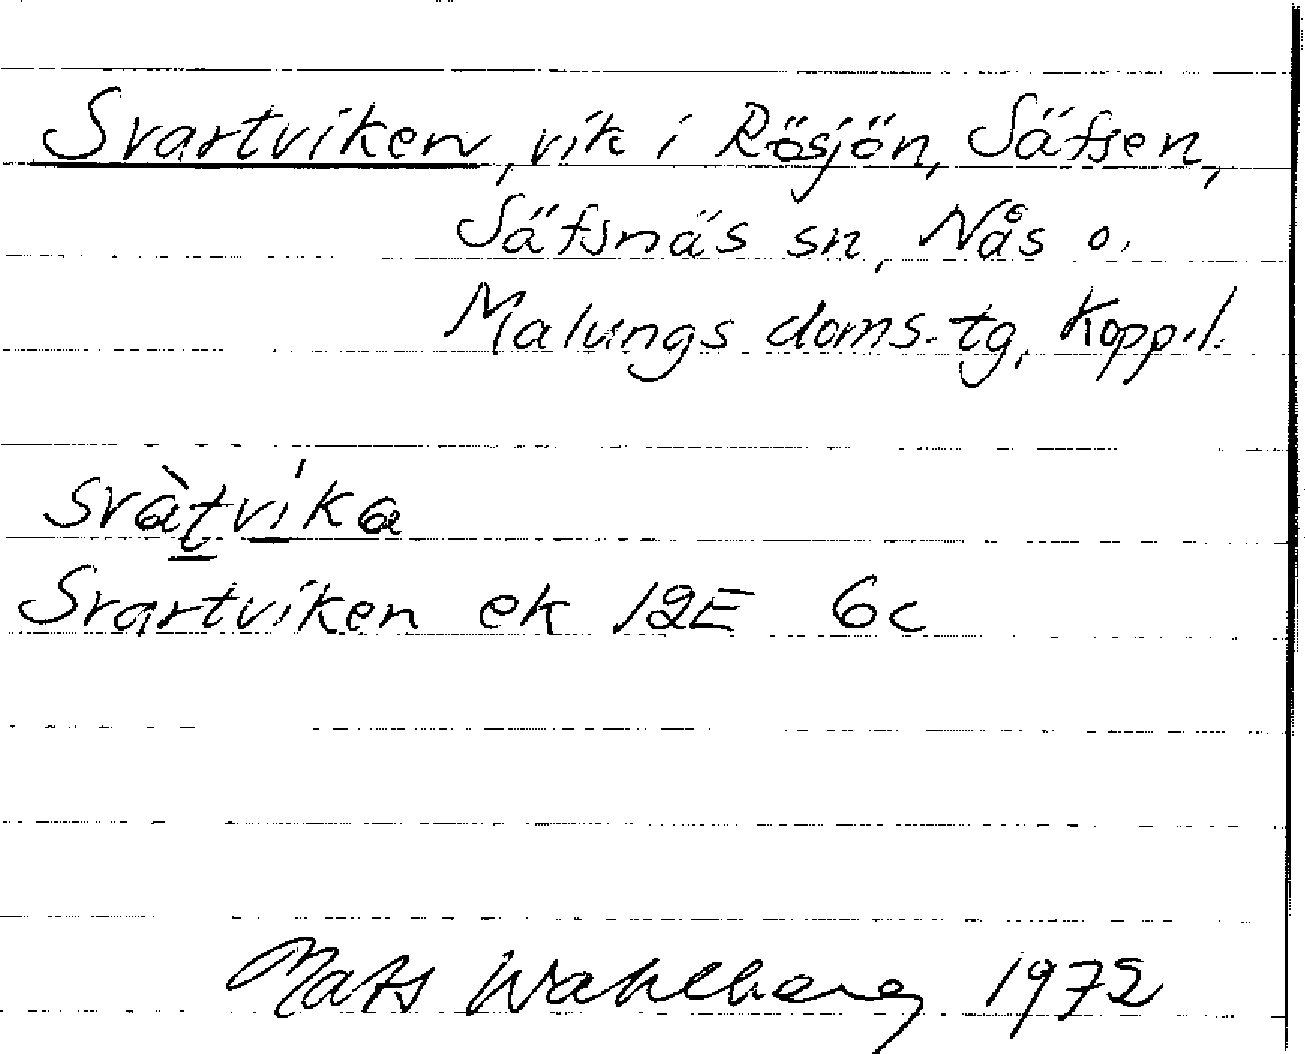 Svartviken, vik i Rösjön, Säfsen,
Säfsnäs sn, Nås o.
Malungs doms.tg, Kopp.l.
svàtvíka
Svartviken ek 12E 6c
Mats Wahlberg 1972